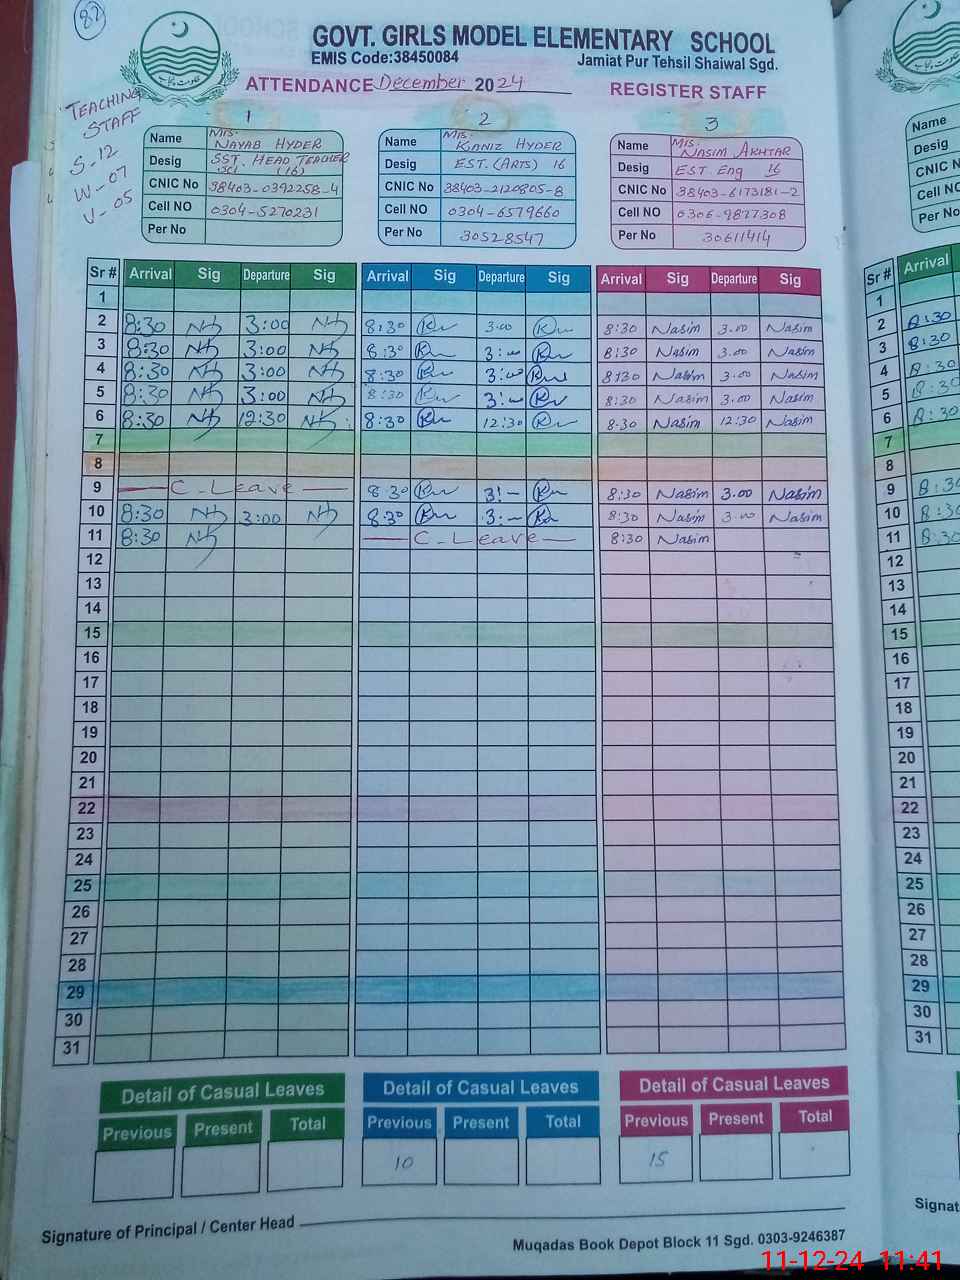 82
GOVT. GIRLS MODEL ELEMENTARY SCHOOL
EMIS Code:38450084 Jamiat Pur Tehsil Shaiwal Sgd.
ATTENDANCE December 2024 REGISTER STAFF
TEACHING
STAFF
S-12
W-07
V-05
1
Name Mis. NAYAB HYDER
Desig SST. HEAD TEACHER
Sci (16)
CNIC No 38403-0392258-4
Cell NO 0304-5270231
Per No
2
Name Mis. KANIZ HYDER
Desig EST. (ARTS) 16
CNIC No 38403-2120805-8
Cell NO 0304-6579660
Per No 30528547
3
Name Mis. NASIM AKHTAR
Desig EST. Eng 16
CNIC No 38403-6173181-2
Cell NO 0306-9877308
Per No 30611414
Sr # Arrival Sig Departure Sig Arrival Sig Departure Sig Arrival Sig Departure Sig
1
2 8:30 NH 3:00 NH 8:30 Kn 3:00 Kn 8:30 Nasim 3.00 Nasim
3 8:30 NH 3:00 NH 8:30 Kn 3:00 Kn 8:30 Nasim 3.00 Nasim
4 8:30 NH 3:00 NH 8:30 Kn 3:00 Kn 8:30 Nasim 3.00 Nasim
5 8:30 NH 3:00 NH 8:30 Kn 3:— Kn 8:30 Nasim 3.00 Nasim
6 8:30 NH 12:30 NH 8:30 Kn 12:30 Kn 8:30 Nasim 12:30 Nasim
7
8
9 C. Leave 8:30 Kn 3:— Kn 8:30 Nasim 3.00 Nasim
10 8:30 NH 3:00 NH 8:30 Kn 3:— Kn 8:30 Nasim 3.00 Nasim
11 8:30 NH C. Leave 8:30 Nasim
12
13
14
15
16
17
18
19
20
21
22
23
24
25
26
27
28
29
30
31
Detail of Casual Leaves Detail of Casual Leaves Detail of Casual Leaves
Previous Present Total Previous Present Total Previous Present Total
10 15
Signature of Principal / Center Head
Muqadas Book Depot Block 11 Sgd. 0303-9246387
Name
Desig
CNIC N
Per No
Sr # Arrival
1
2 8:30
3 8:30
4 8:30
5 8:30
6 8:30
7
8
9 8:30
10 8:30
11 8:30
12
13
14
15
16
17
18
19
20
21
22
23
24
25
26
27
28
29
30
31
Signat
11-12-24 11:41